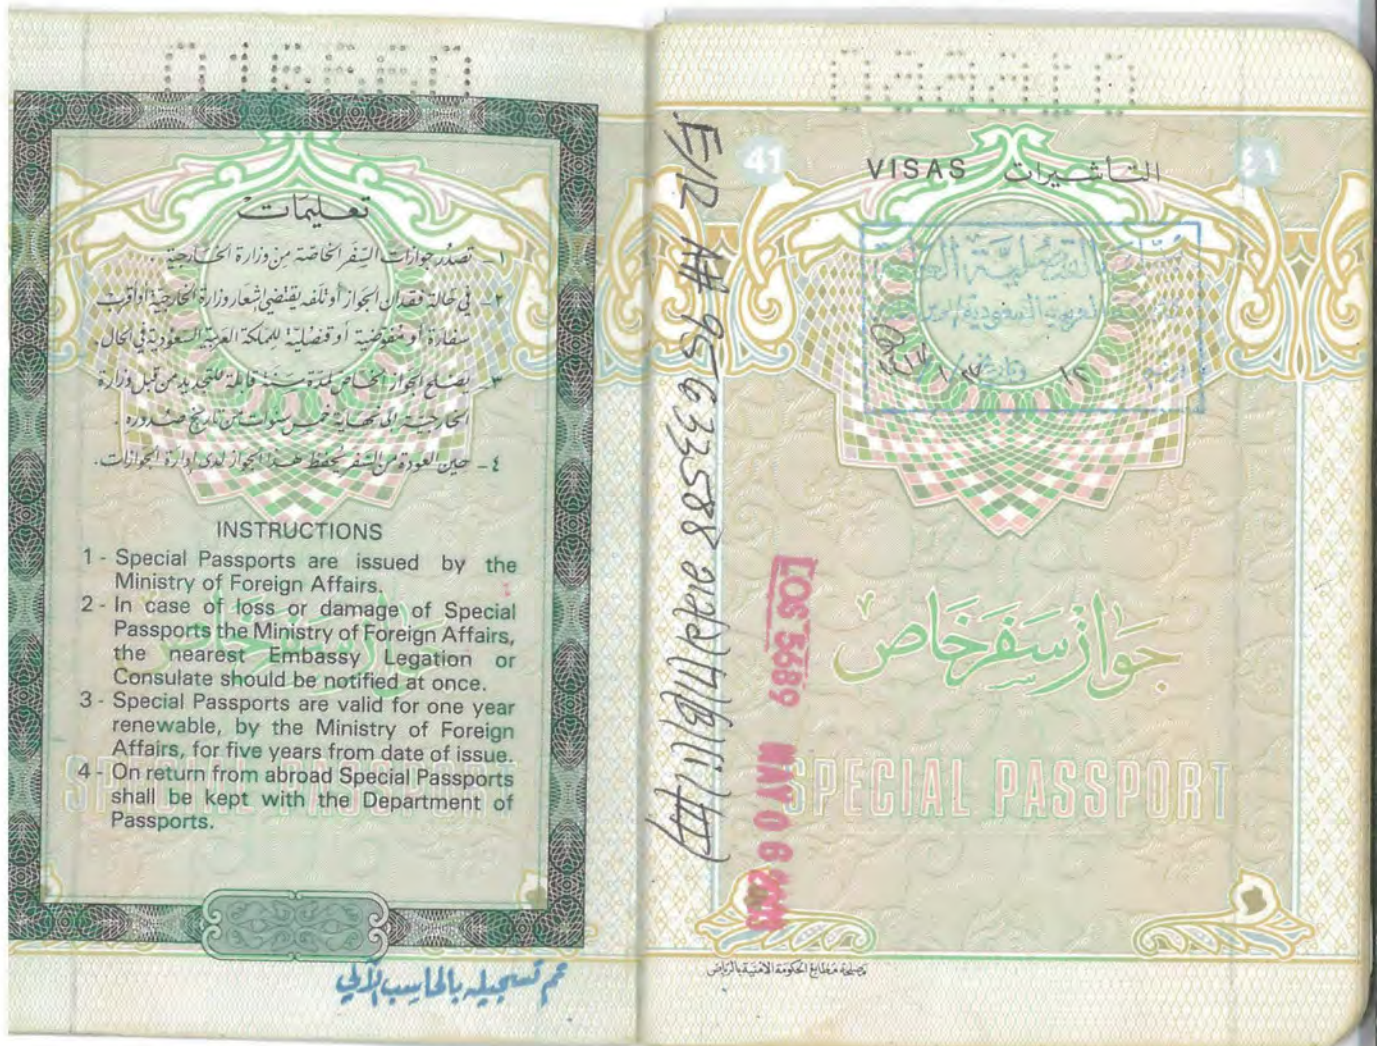 تعليمات
١ - تصدر جوازات السفر الخاصة من وزارة الخارجية .
٢ - في حالة فقدان الجواز أو تلفه يقتضي إشعار وزارة الخارجية أو اقرب
سفارة أو مفوضية أو قنصلية للمملكة العربية السعودية في الحال .
٣ - يصلح الجواز الخاص لمدة سنة قابلة للتجديد من قبل وزارة
الخارجية الى نهاية خمس سنوات من تاريخ صدوره .
٤ - حين العودة من السفر يحفظ هذا الجواز لدى إدارة الجوازات .
INSTRUCTIONS
1 - Special Passports are issued by the
Ministry of Foreign Affairs.
2 - In case of loss or damage of Special
Passports the Ministry of Foreign Affairs,
the nearest Embassy Legation or
Consulate should be notified at once.
3 - Special Passports are valid for one year
renewable, by the Ministry of Foreign
Affairs, for five years from date of issue.
4 - On return from abroad Special Passports
shall be kept with the Department of
Passports.
تم تسجيله بالحاسب الآلي
41
VISAS التأشيرات
٤١
LOS 5689 MAY 06
جواز سفر خاص
SPECIAL PASSPORT
مصلحة مطابع الحكومة الامنية بالرياض